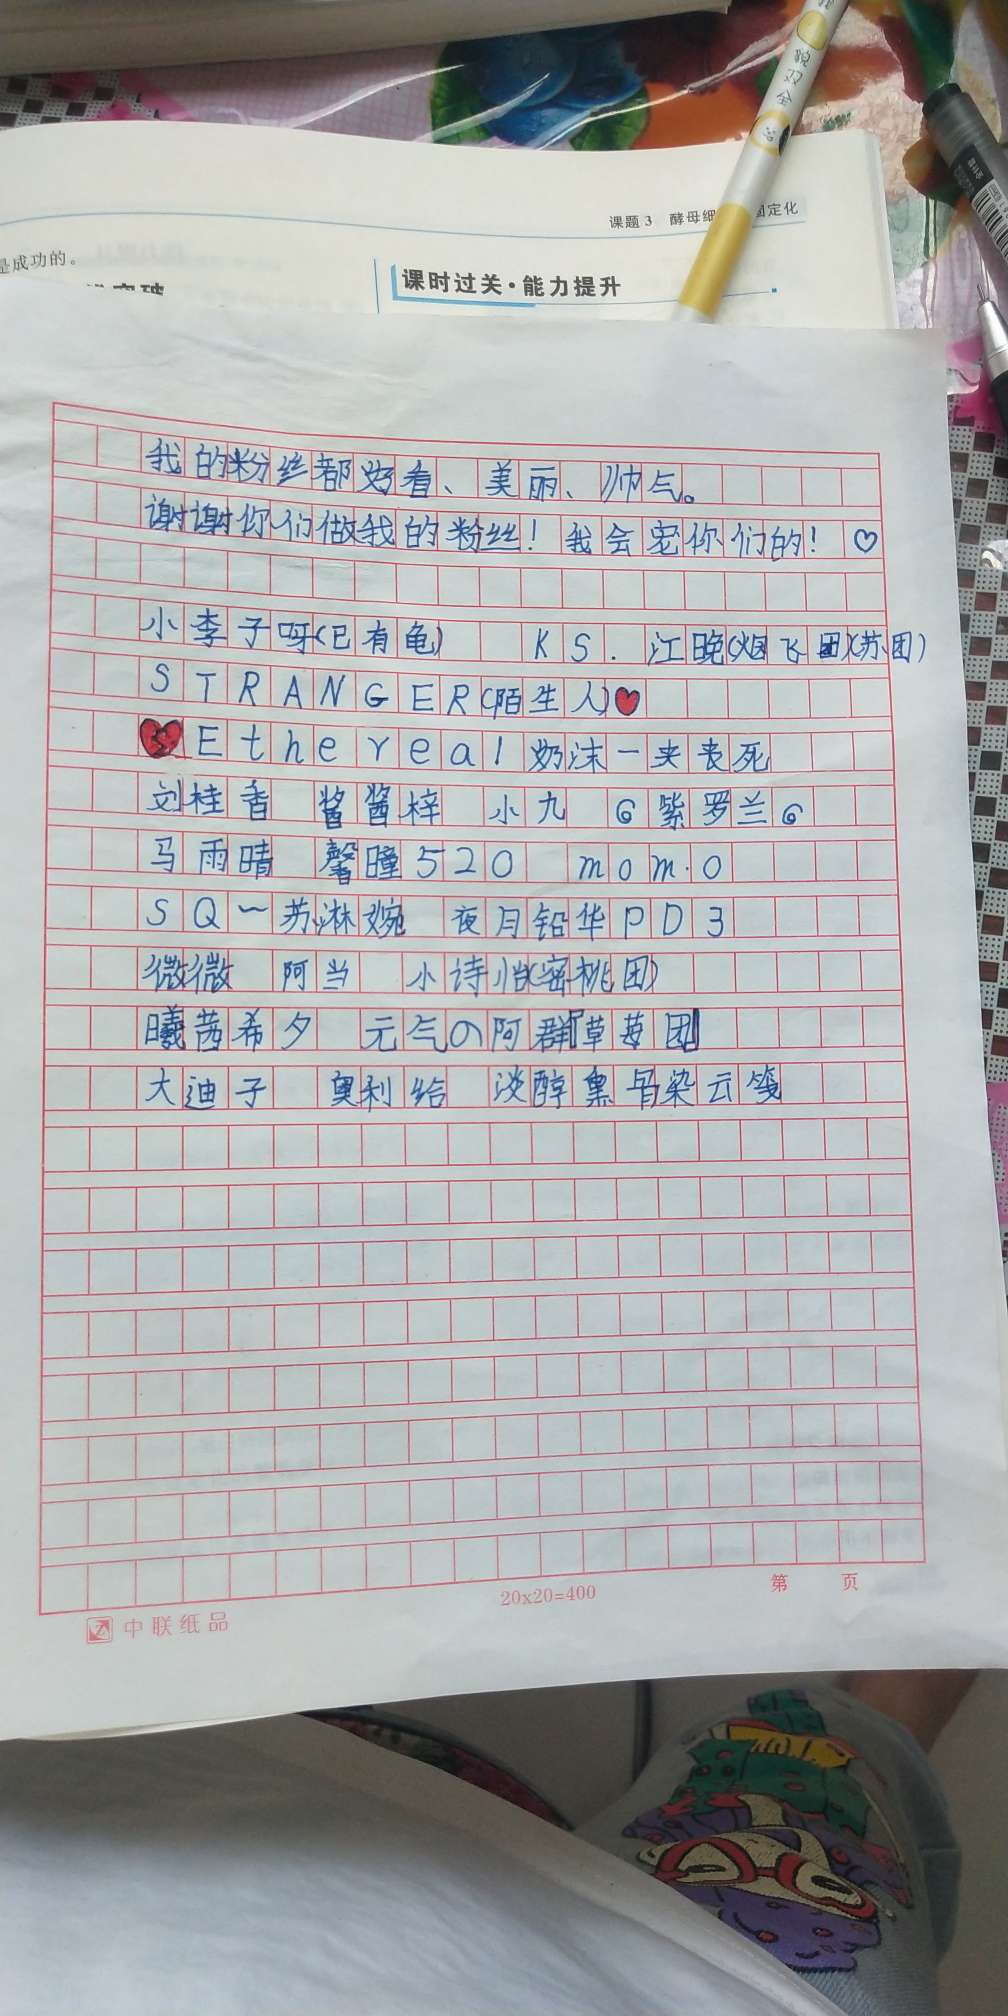 貌双全
课题3 酵母细 固定化
是成功的。
课时过关·能力提升
我的粉丝都好看、美丽、帅气。
谢谢你们做我的粉丝！我会宠你们的！♡
小李子呀(已有龟) KS.江晚(烟飞团)(苏团)
STRANGER(陌生人)❤
Ethereal 奶沫一夹丧死
刘桂香 酱酱梓 小九 G紫罗兰G
马雨晴 馨瞳520 mom.o
SQ一苏淋婉 夜月铅华PD3
微微 阿当 小诗怡(密桃团)
曦茜希夕 元气の阿群『草莓团』
大迪子 奥利给 淡醇墨骨染云笺
20x20=400
第 页
中联纸品